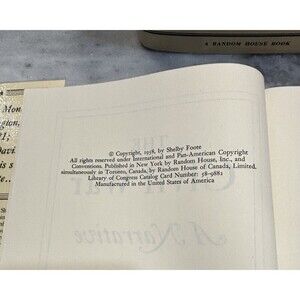 A RANDOM HOUSE BOOK
Mon
gion,
Davi
is s
te.
© Copyright, 1958, by Shelby Foote
All rights reserved under International and Pan-American Copyright
Conventions. Published in New York by Random House, Inc., and
simultaneously in Toronto, Canada, by Random House of Canada, Limited.
Library of Congress Catalog Card Number: 58-9882
Manufactured in the United States of America
A Narrative